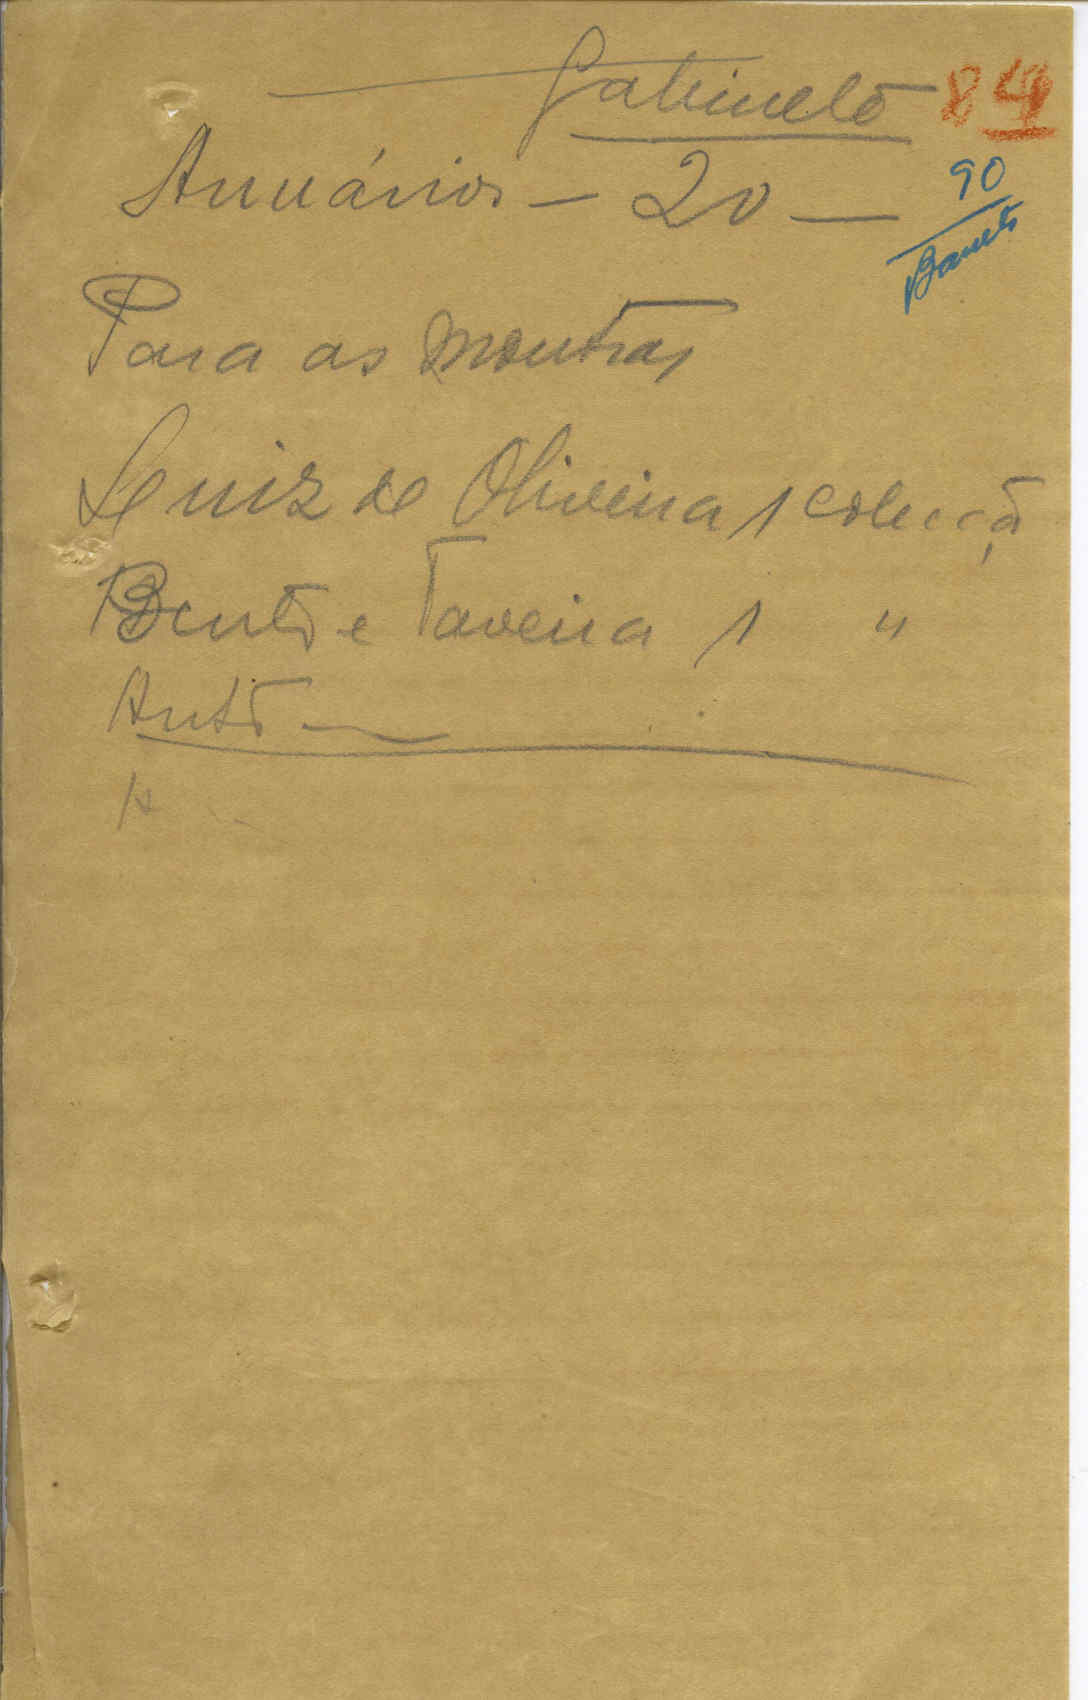 Gabinete 84
Anuários — 20 —
90
Para as montras
Luiz de Oliveira 1 colecçã
Bento e Taveira 1 "